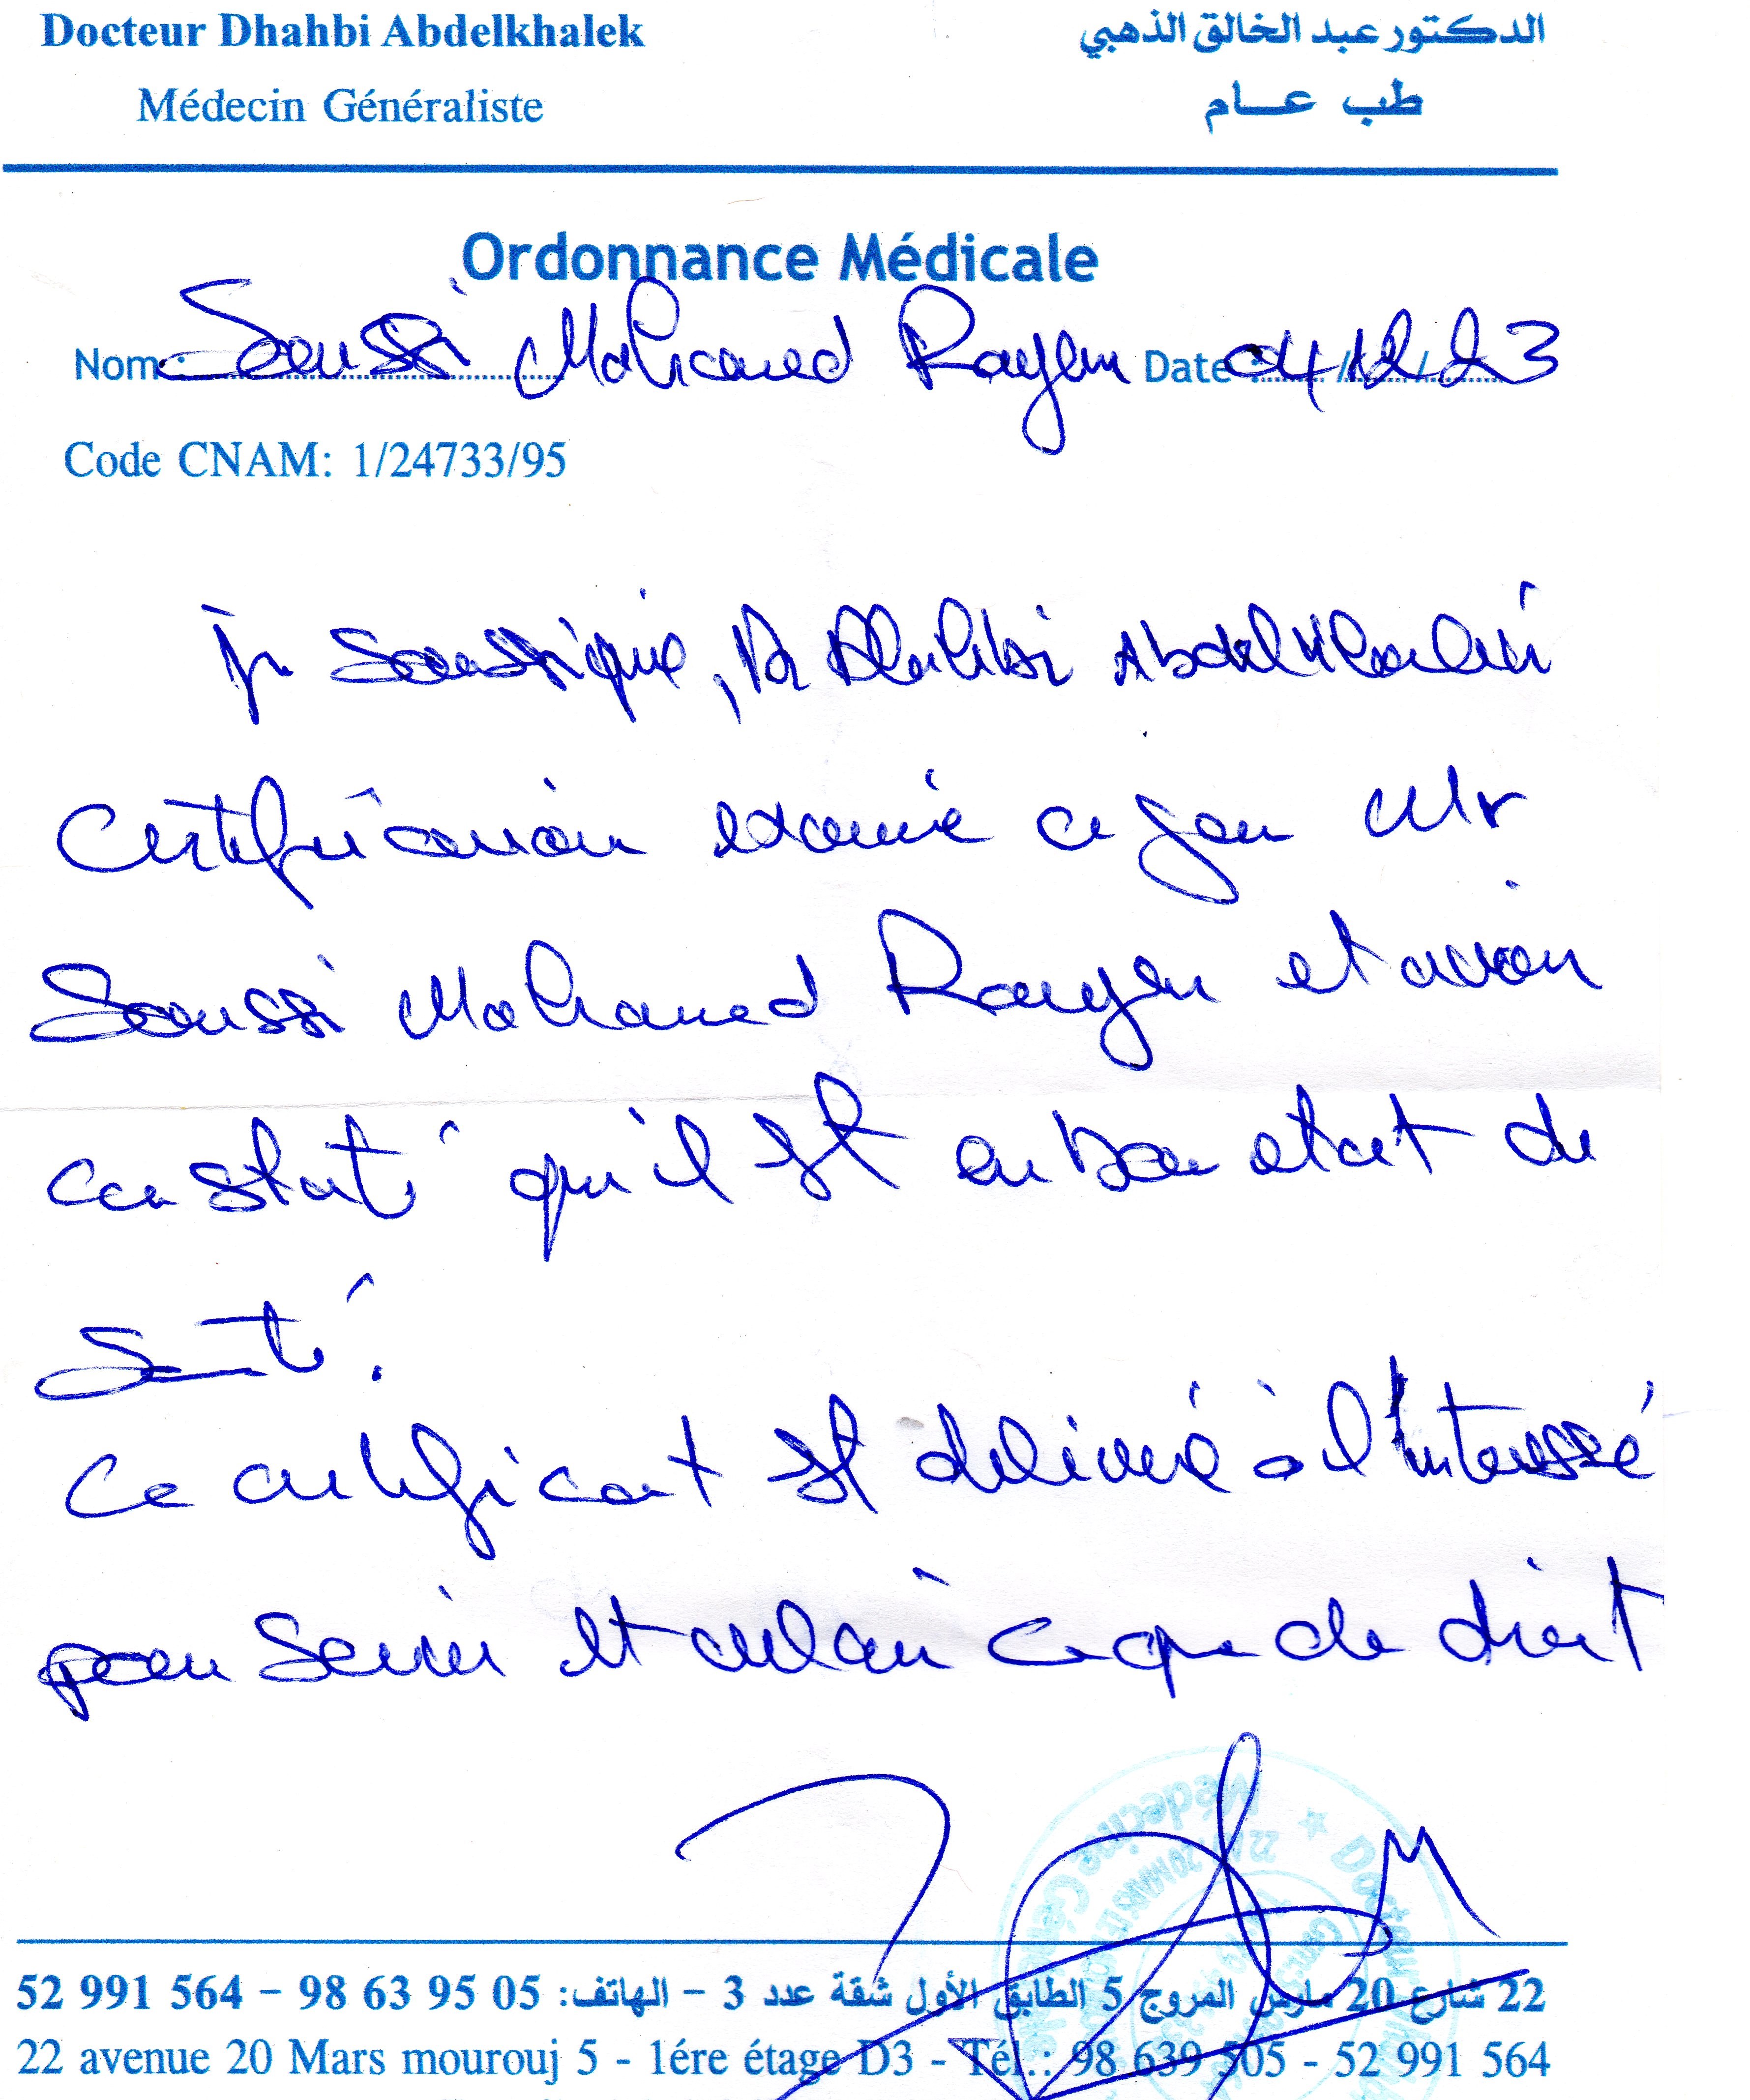 Docteur Dhahbi Abdelkhalek
الدكتور عبد الخالق الذهبي
Médecin Généraliste
طب عــام
Ordonnance Médicale
Nom : Soussi Mohamed Rayen Date : 04/12/23
Code CNAM: 1/24733/95
je soussigné, Dr Dhahbi Abdelkhalek
Certifie avoir examiné ce jour Mr
Soussi Mohamed Rayen et avoir
constaté qu'il est en bon état de
santé.
Ce certificat est délivré à l'intéressé
pour servir et valoir ce que de droit
22 شارع 20 مارس المروج 5 الطابق الأول شقة عدد 3 – الهاتف: 05 95 63 98 – 564 991 52
22 avenue 20 Mars mourouj 5 - 1ére étage D3 - Tél.: 98 639 505 - 52 991 564